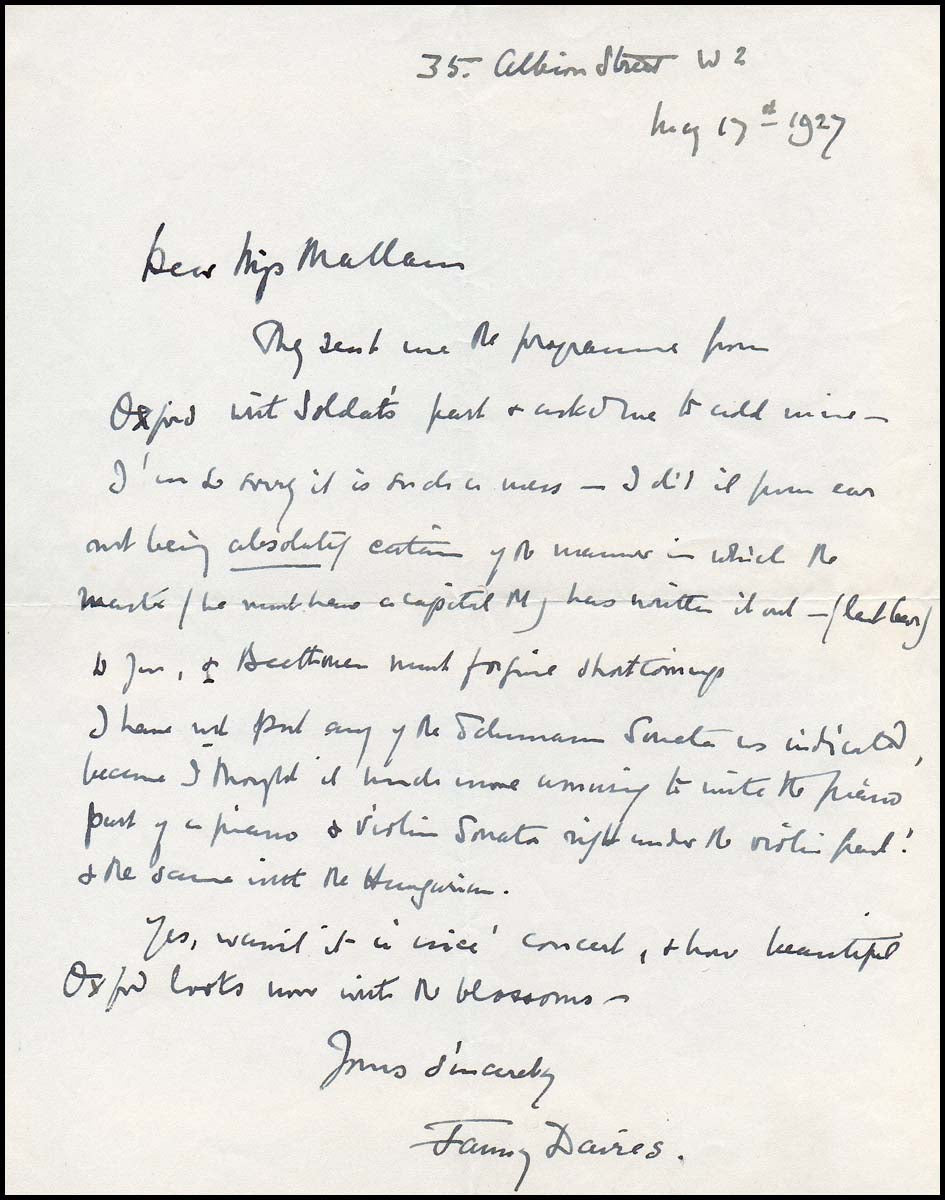 35. Albion Street W 2
May 17th 1927
Dear Miss Mallam
They sent me the programme from
Oxford with Soldat's part & asked me to add mine —
I'm so sorry it is such a mess — I did it from ear
not being absolutely certain of the manner in which the
Master (he must have a capital M) has written it out — (last bar)
so you, & Beethoven must forgive shortcomings
I have not put any of the Schumann Sonata as indicated,
because I thought it much more amusing to write the piano
part of a piano & violin Sonata right under the violin part!
& the same with the Hungarian.
Yes, wasn't it a nice concert, & how beautiful
Oxford looks now with the blossoms —
Yours sincerely
Fanny Davies.